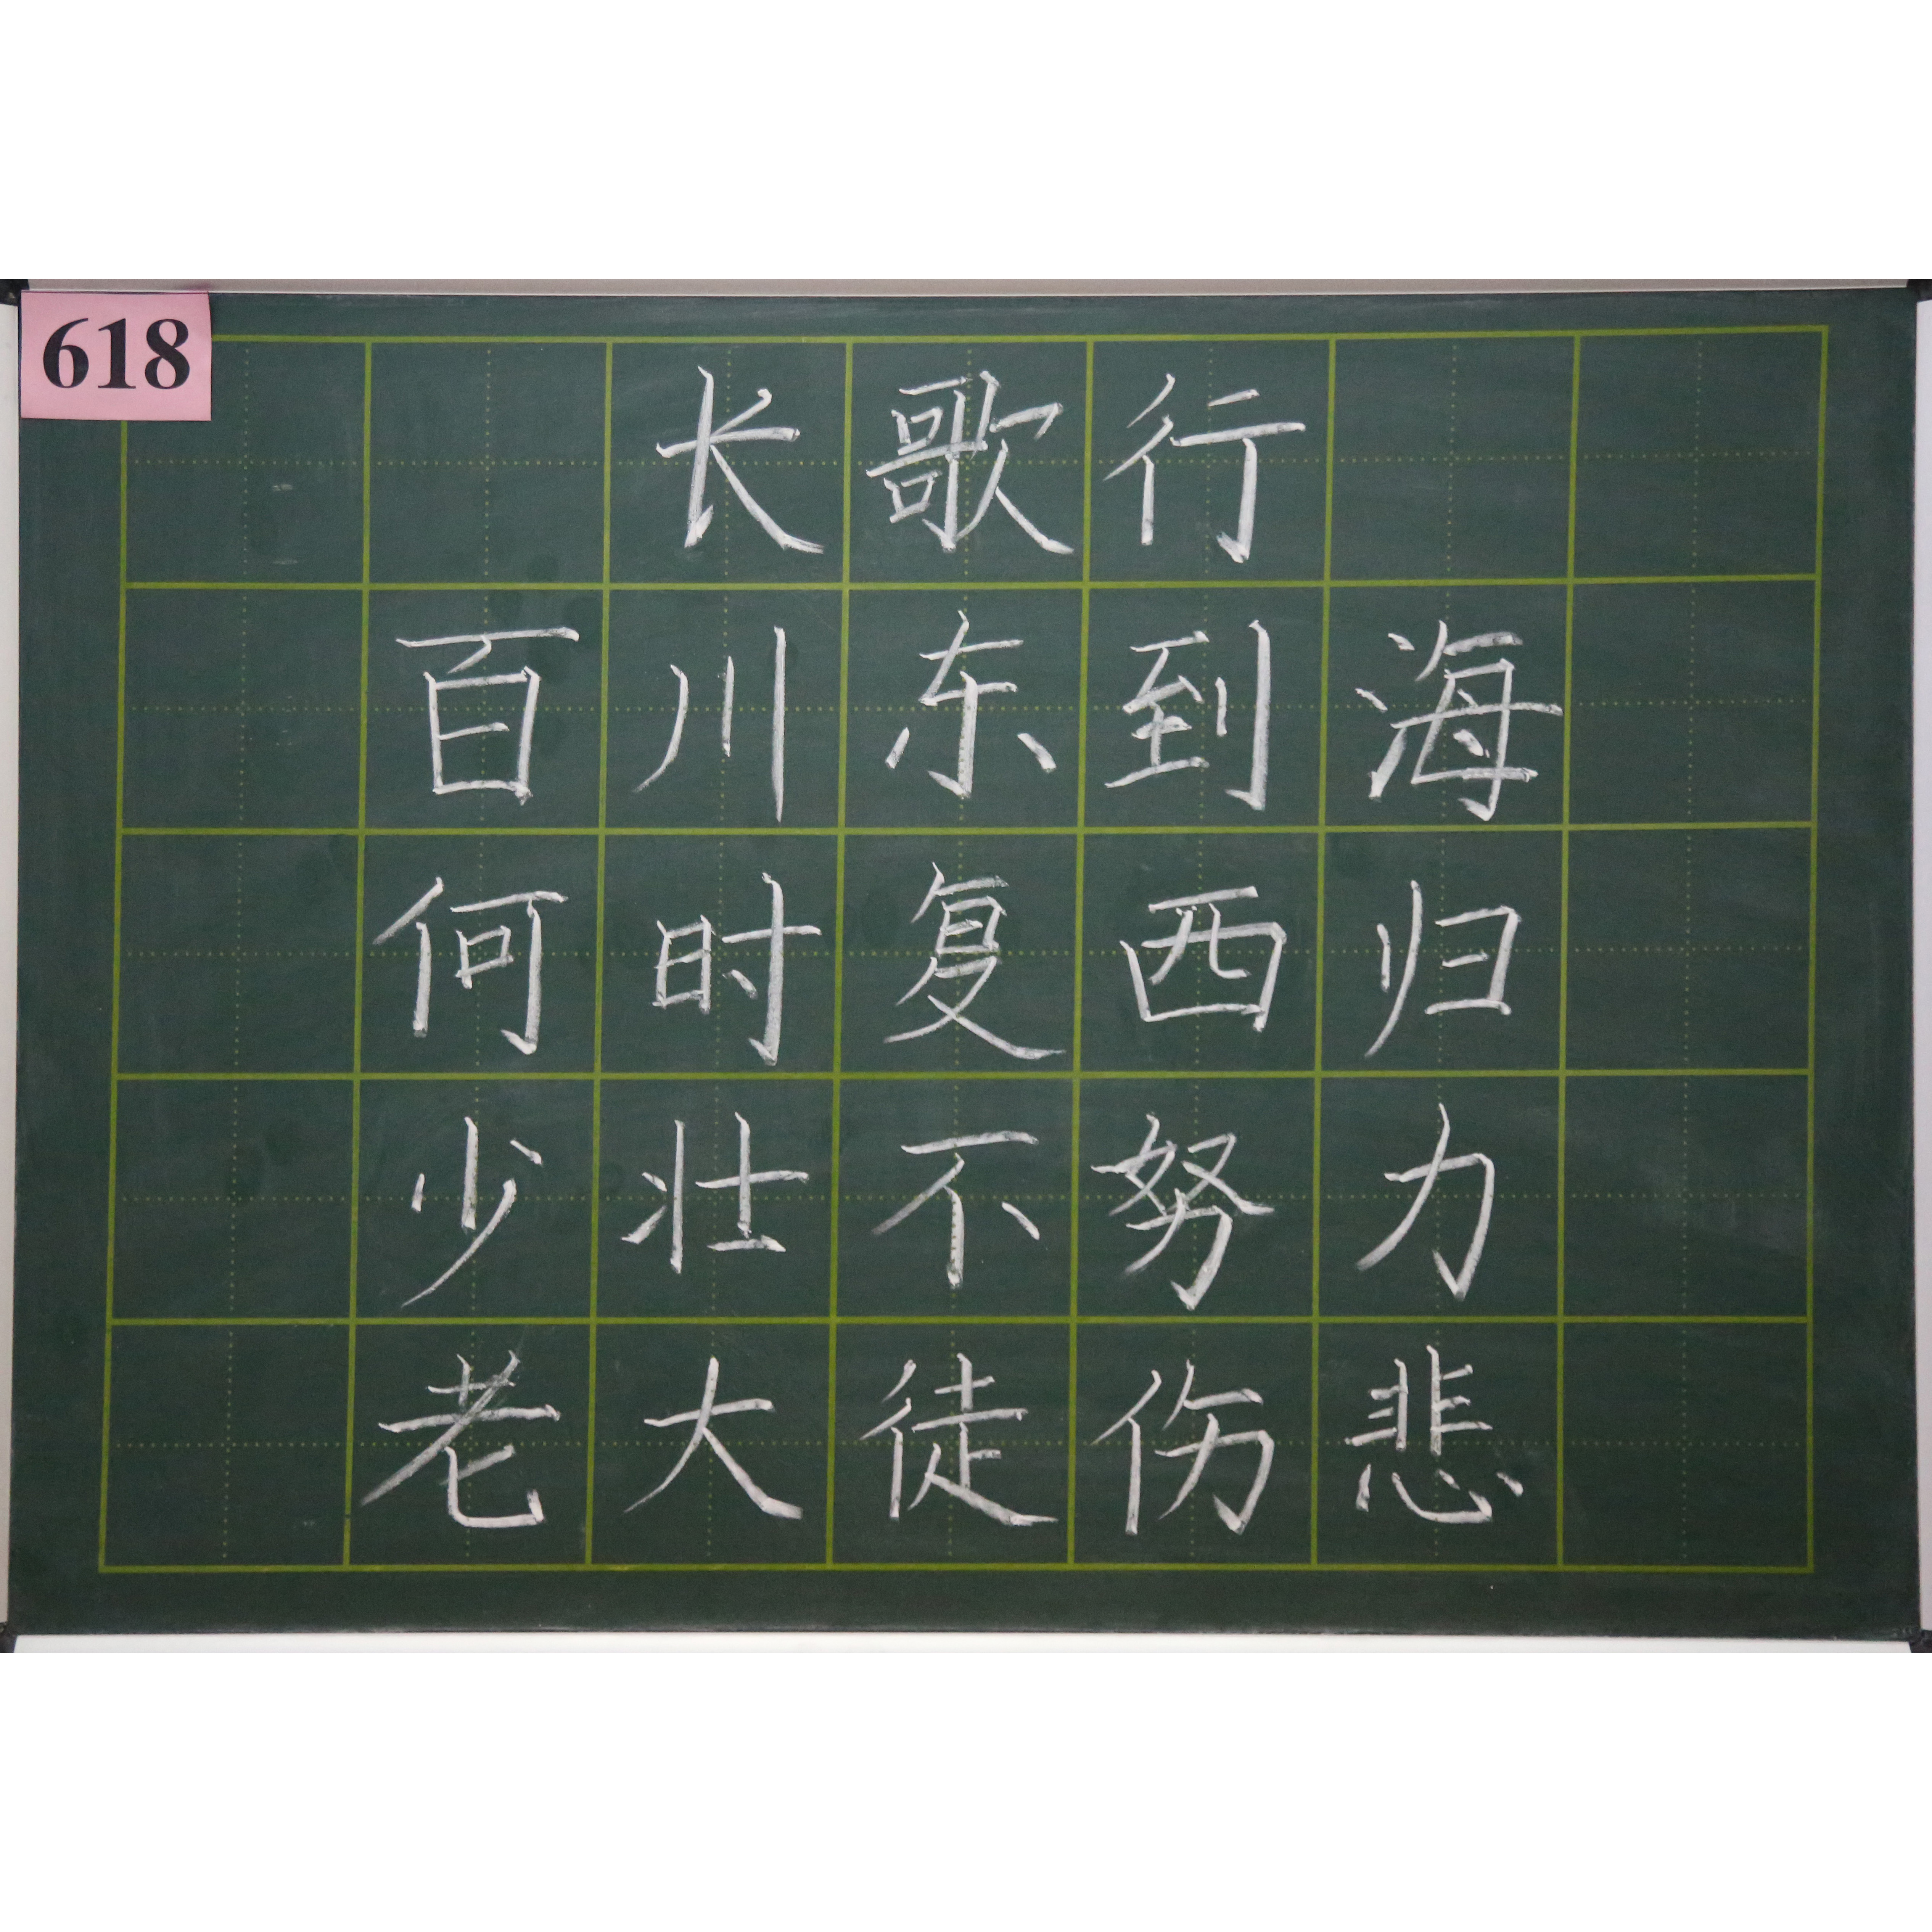 618
长歌行
百川东到海
何时复西归
少壮不努力
老大徒伤悲